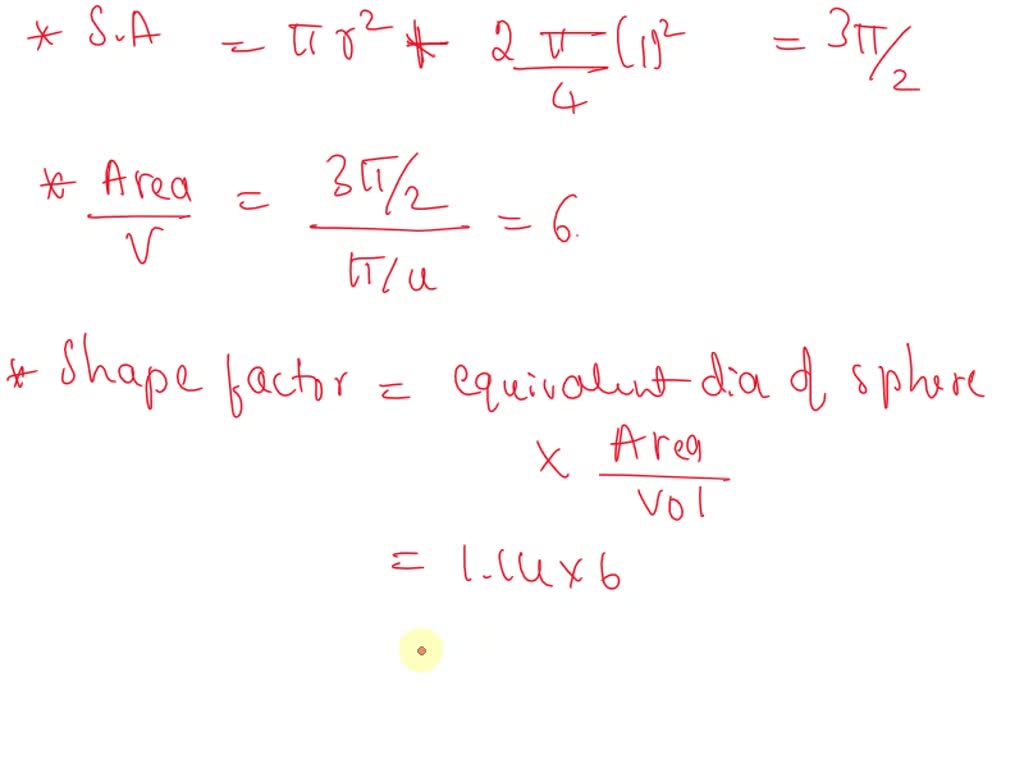 * S.A = πr² + 2 π/4 (1)² = 3π/2
* Area/V = (3π/2)/(π/4) = 6.
* Shape factor = equivalent dia of sphere
× Area/Vol
= 1.14 × 6